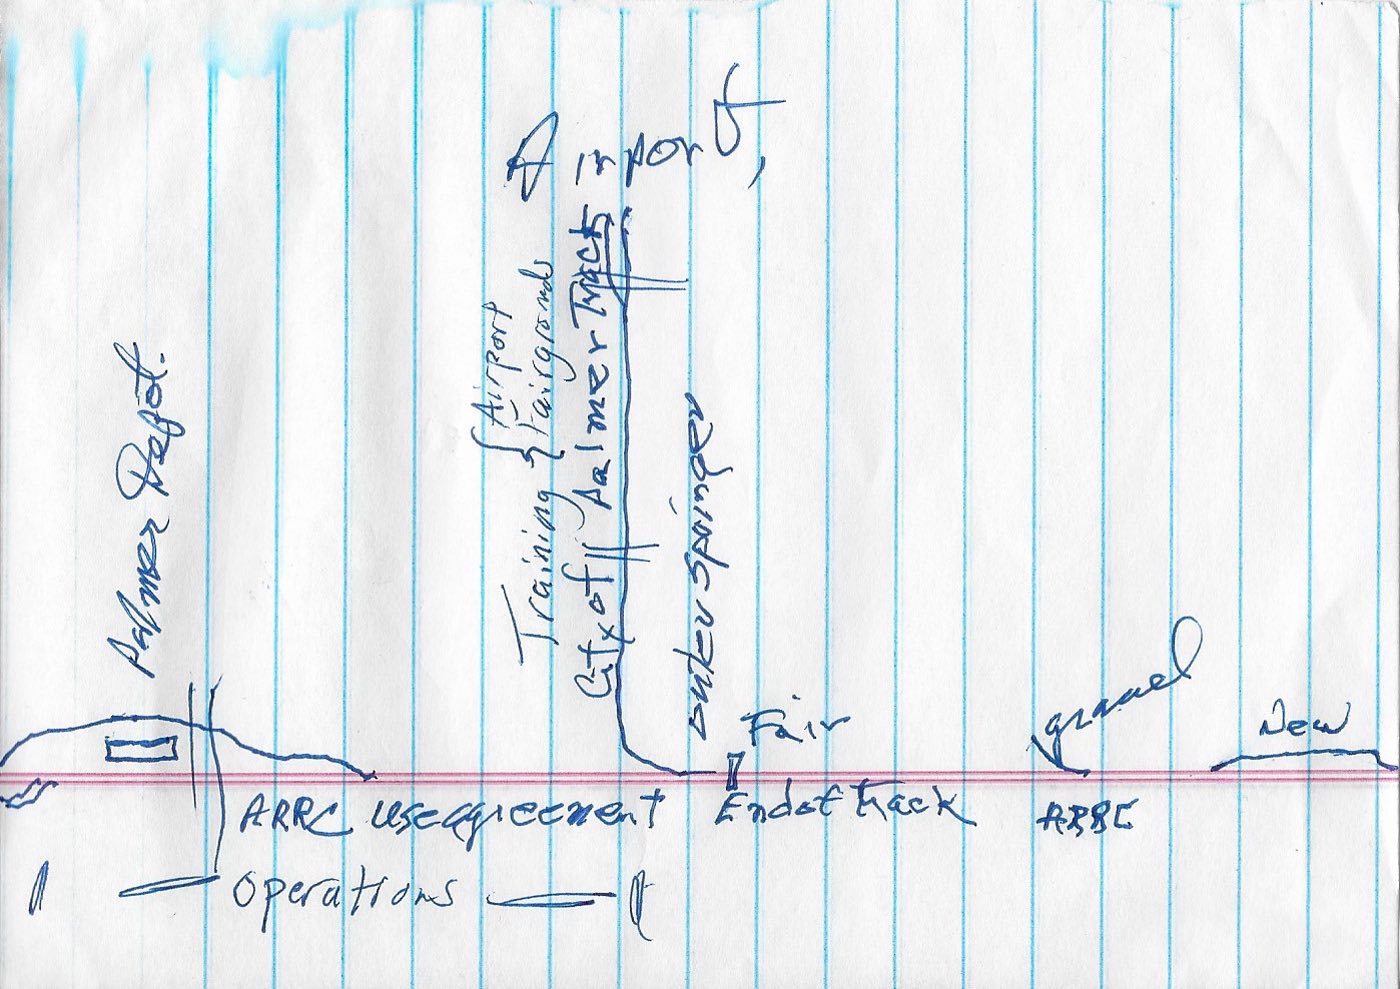 Palmer Depot.
Training { Airport
{ Fairgrounds
City of Palmer Track
Airport
outer springer
Fair
gravel
New
ARRC use agreement
End of track
ARRC
Operations